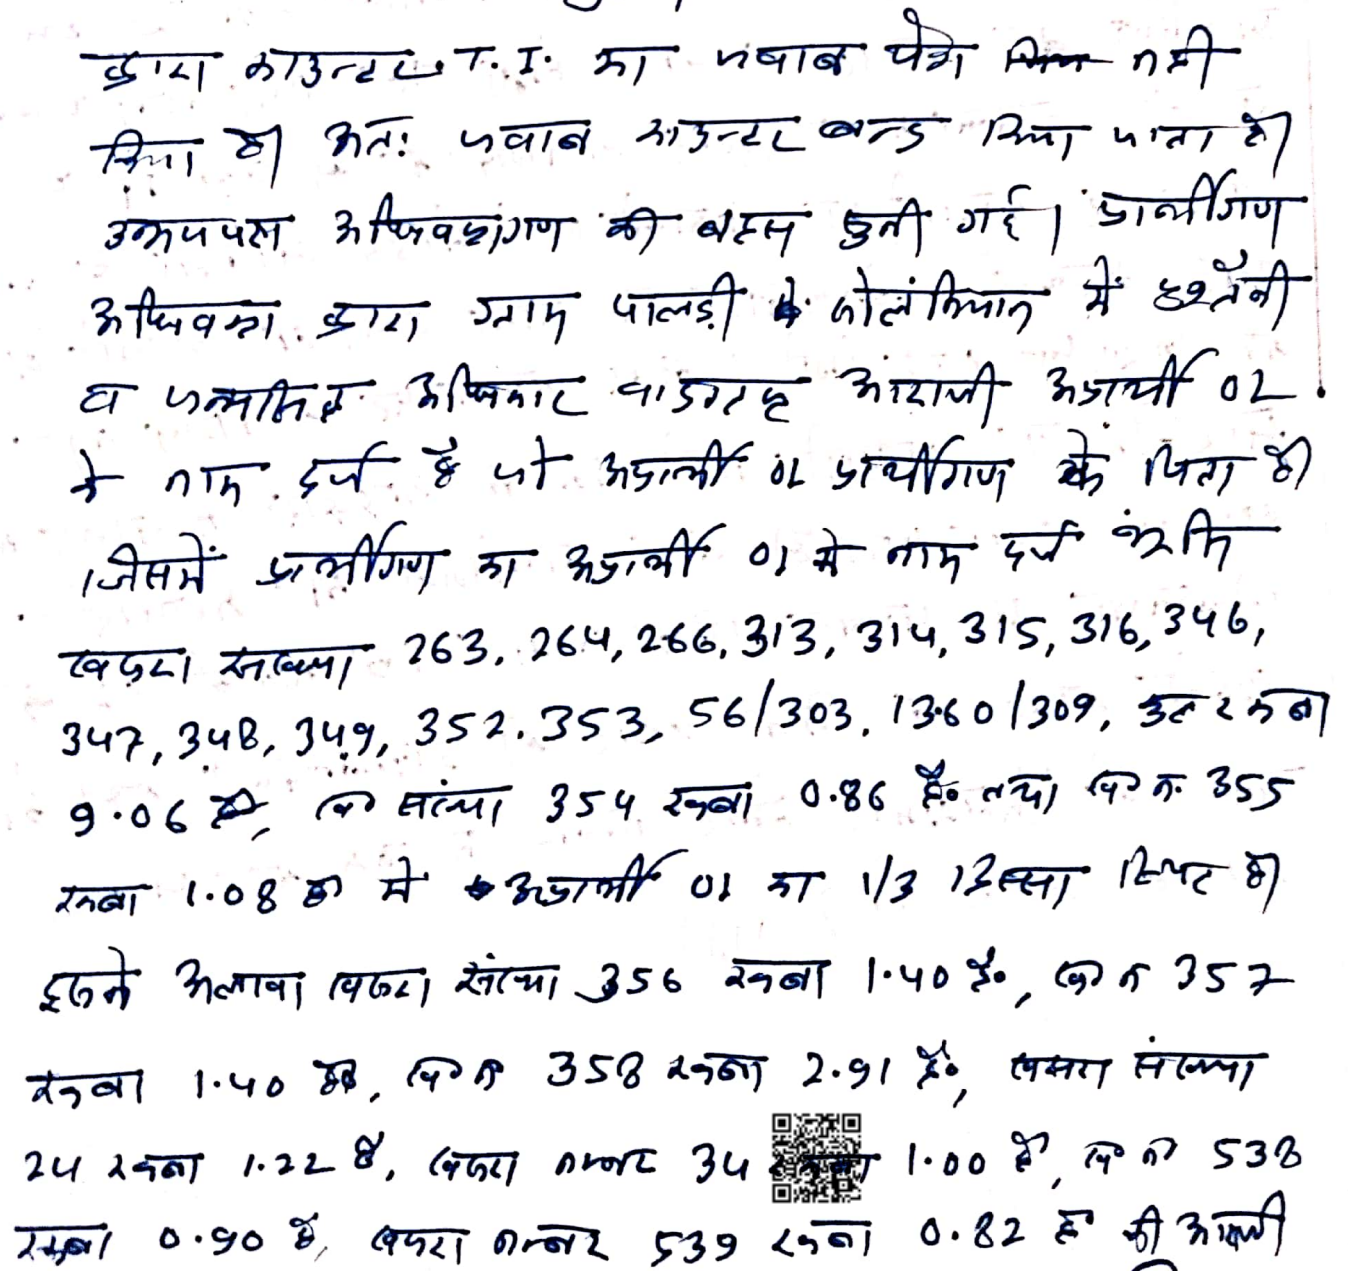 द्वारा काउन्टर T.I. का जबाब पेश नही
किया है। अतः जवाब काउन्टर बन्द किया जाता है।
उभयपक्ष अधिवक्तागण की बहस सुनी गई। प्रार्थीगण
अधिवक्ता द्वारा ग्राम पालड़ी के में पुश्तैनी
व जन्मसिद्ध अधिकार वादग्रस्त आराजी अप्रार्थी 01
के नाम दर्ज है जो अप्रार्थी 01 प्रार्थीगण के पिता है।
जिसमें प्रार्थीगण का अप्रार्थी 01 के नाम दर्ज
खसरा संख्या 263, 264, 266, 313, 314, 315, 316, 346,
347, 348, 349, 352, 353, 56/303, 1360/309, कुल रकबा
9.06 है, ख० संख्या 354 रकबा 0.86 है० तथा ख० न. 355
रकबा 1.08 है० में अप्रार्थी 01 का 1/3 हिस्सा स्थित है।
इसके अलावा खसरा संख्या 356 रकबा 1.40 है०, ख० न 357
रकबा 1.40 है०, ख० न 358 रकबा 2.91 है०, खसरा संख्या
24 रकबा 1.22 है, खसरा नम्बर 34 रकबा 1.00 है, ख० न० 538
रकबा 0.90 है, खसरा नम्बर 539 रकबा 0.82 है की आराजी